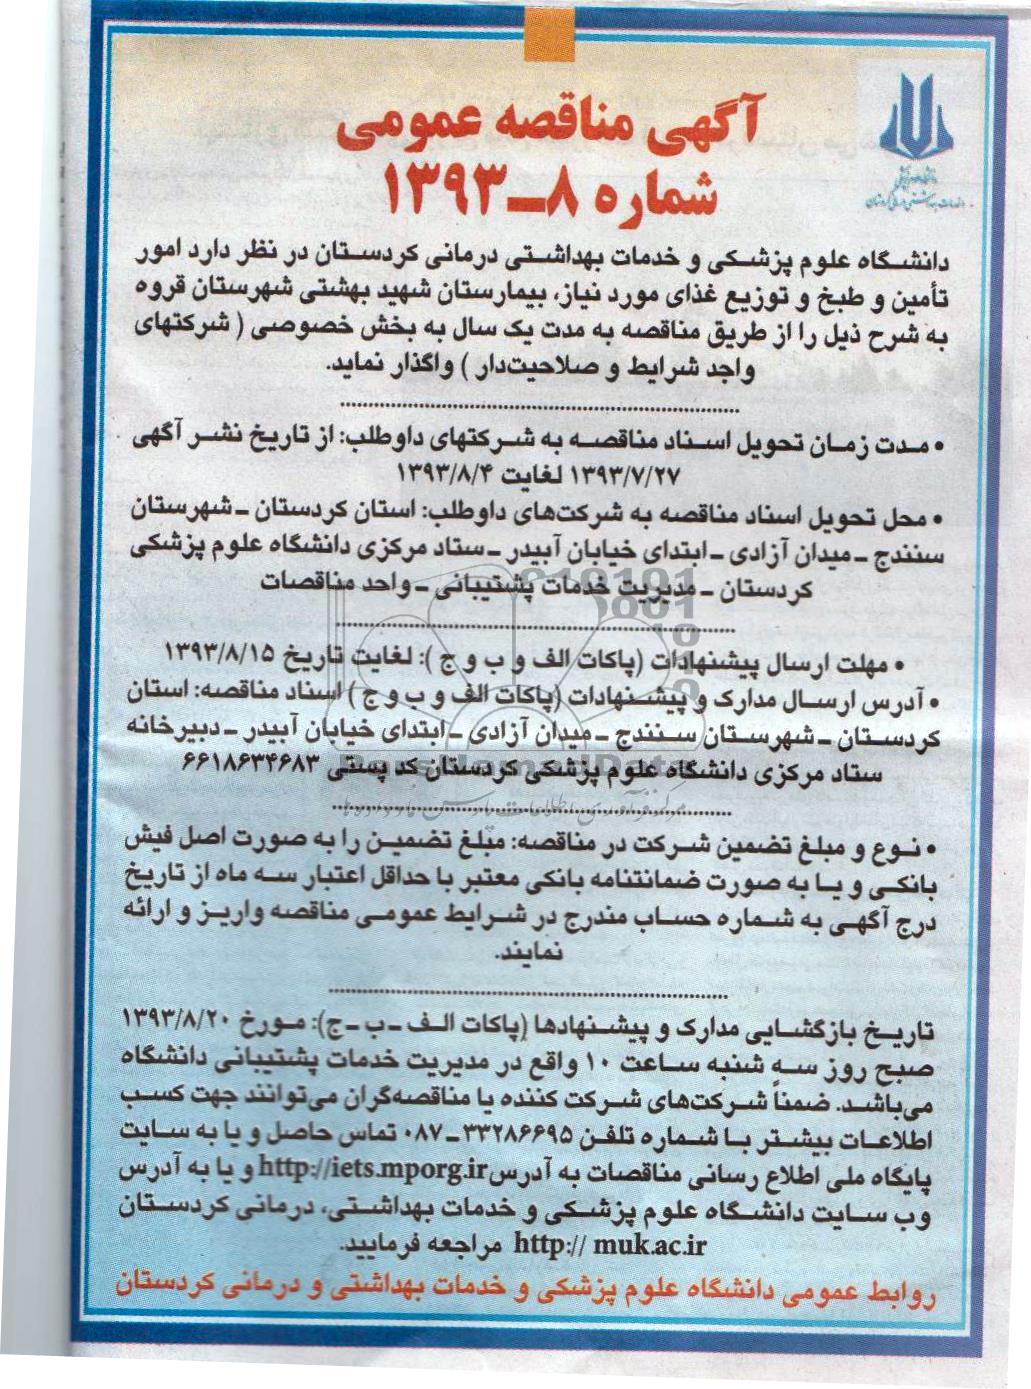 آگهی مناقصه عمومی
شماره ۸ــ۱۳۹۳
دانشگاه علوم پزشکی و خدمات بهداشتی درمانی کردستان در نظر دارد امور
تأمین و طبخ و توزیع غذای مورد نیاز، بیمارستان شهید بهشتی شهرستان قروه
به شرح ذیل را از طریق مناقصه به مدت یک سال به بخش خصوصی ( شرکتهای
واجد شرایط و صلاحیت‌دار ) واگذار نماید.
• مدت زمان تحویل اسناد مناقصه به شرکتهای داوطلب: از تاریخ نشر آگهی
۱۳۹۳/۷/۲۷ لغایت ۱۳۹۳/۸/۴
• محل تحویل اسناد مناقصه به شرکت‌های داوطلب: استان کردستان ـ شهرستان
سنندج ـ میدان آزادی ـ ابتدای خیابان آبیدر ـ ستاد مرکزی دانشگاه علوم پزشکی
کردستان ـ مدیریت خدمات پشتیبانی ـ واحد مناقصات
• مهلت ارسال پیشنهادات (پاکات الف و ب و ج ): لغایت تاریخ ۱۳۹۳/۸/۱۵
• آدرس ارسال مدارک و پیشنهادات (پاکات الف و ب و ج ) اسناد مناقصه: استان
کردستان ـ شهرستان سنندج ـ میدان آزادی ـ ابتدای خیابان آبیدر ـ دبیرخانه
ستاد مرکزی دانشگاه علوم پزشکی کردستان کد پستی ۶۶۱۸۶۳۴۶۸۳
• نوع و مبلغ تضمین شرکت در مناقصه: مبلغ تضمین را به صورت اصل فیش
بانکی و یا به صورت ضمانتنامه بانکی معتبر با حداقل اعتبار سه ماه از تاریخ
درج آگهی به شماره حساب مندرج در شرایط عمومی مناقصه واریز و ارائه
نمایند.
تاریخ بازگشایی مدارک و پیشنهادها (پاکات الف ـ ب ـ ج): مورخ ۱۳۹۳/۸/۲۰
صبح روز سه شنبه ساعت ۱۰ واقع در مدیریت خدمات پشتیبانی دانشگاه
می‌باشد. ضمناً شرکت‌های شرکت کننده یا مناقصه‌گران می‌توانند جهت کسب
اطلاعات بیشتر با شماره تلفن ۳۳۲۸۶۶۹۵ ـ ۰۸۷ تماس حاصل و یا به سایت
پایگاه ملی اطلاع رسانی مناقصات به آدرس http://iets.mporg.ir و یا به آدرس
وب سایت دانشگاه علوم پزشکی و خدمات بهداشتی، درمانی کردستان
http:// muk.ac.ir مراجعه فرمایید.
روابط عمومی دانشگاه علوم پزشکی و خدمات بهداشتی و درمانی کردستان